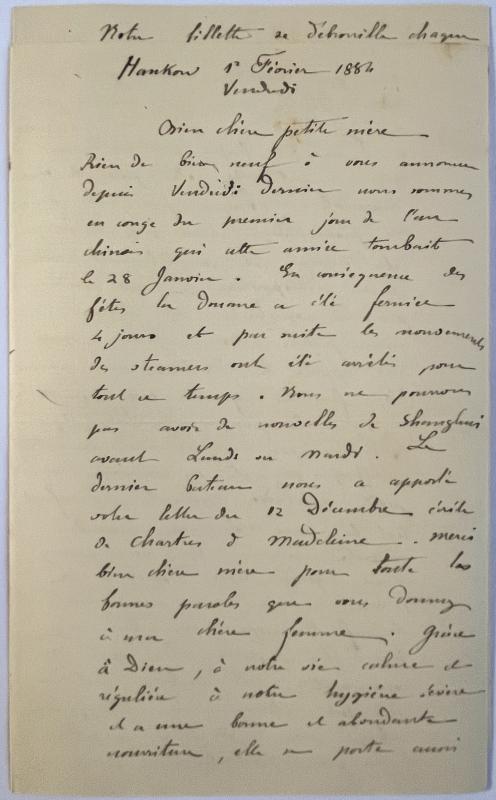 Notre fillette se débrouille chaque
Hankow 1er Février 1884
Vendredi
Bien chère petite mère
Rien de bien neuf à vous annoncer
depuis Vendredi dernier nous sommes
en congé du premier jour de l'an
chinois qui cette année tombait
le 28 Janvier. En conséquence des
fêtes la Douane a été fermée
4 jours et par suite les mouvements
des steamers ont été arrêtés pour
tout ce temps. Nous ne pouvons
pas avoir de nouvelles de Shanghai
avant Lundi ou Mardi. Le
dernier bateau nous a apporté
votre lettre du 12 Décembre écrite
de Chartres & Madeleine.. merci
bien chère mère pour toute les
bonnes paroles que vous donnez
à ma chère femme. Grâce
à Dieu, à notre vie calme et
régulière à notre hygiène sévère
et a une bonne et abondante
nourriture, elle se porte aussi